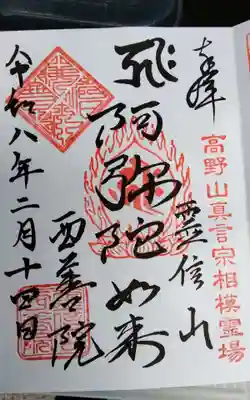 奉拝
高野山真言宗相模霊場
霊信山
飛阿弥陀如来
西善院
令和八年二月十四日